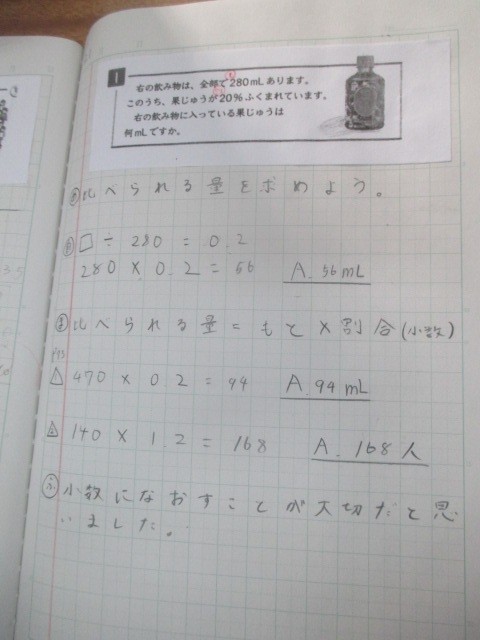 1
右の飲み物は、全部で280mLあります。
このうち、果じゅうが20%ふくまれています。
右の飲み物に入っている果じゅうは
何mLですか。
め 比べられる量を求めよう。
□÷280=0.2
280×0.2=56 A.56mL
ま 比べられる量=もと×割合(小数)
470×0.2=94 A.94mL
140×1.2=168 A.168人
ふ 小数になおすことが大切だと思
いました。